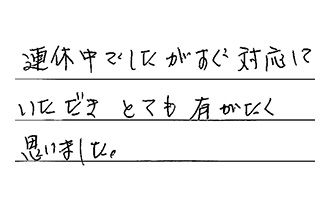 連休中でしたがすぐ対応して
いただき とても 有がたく
思いました。